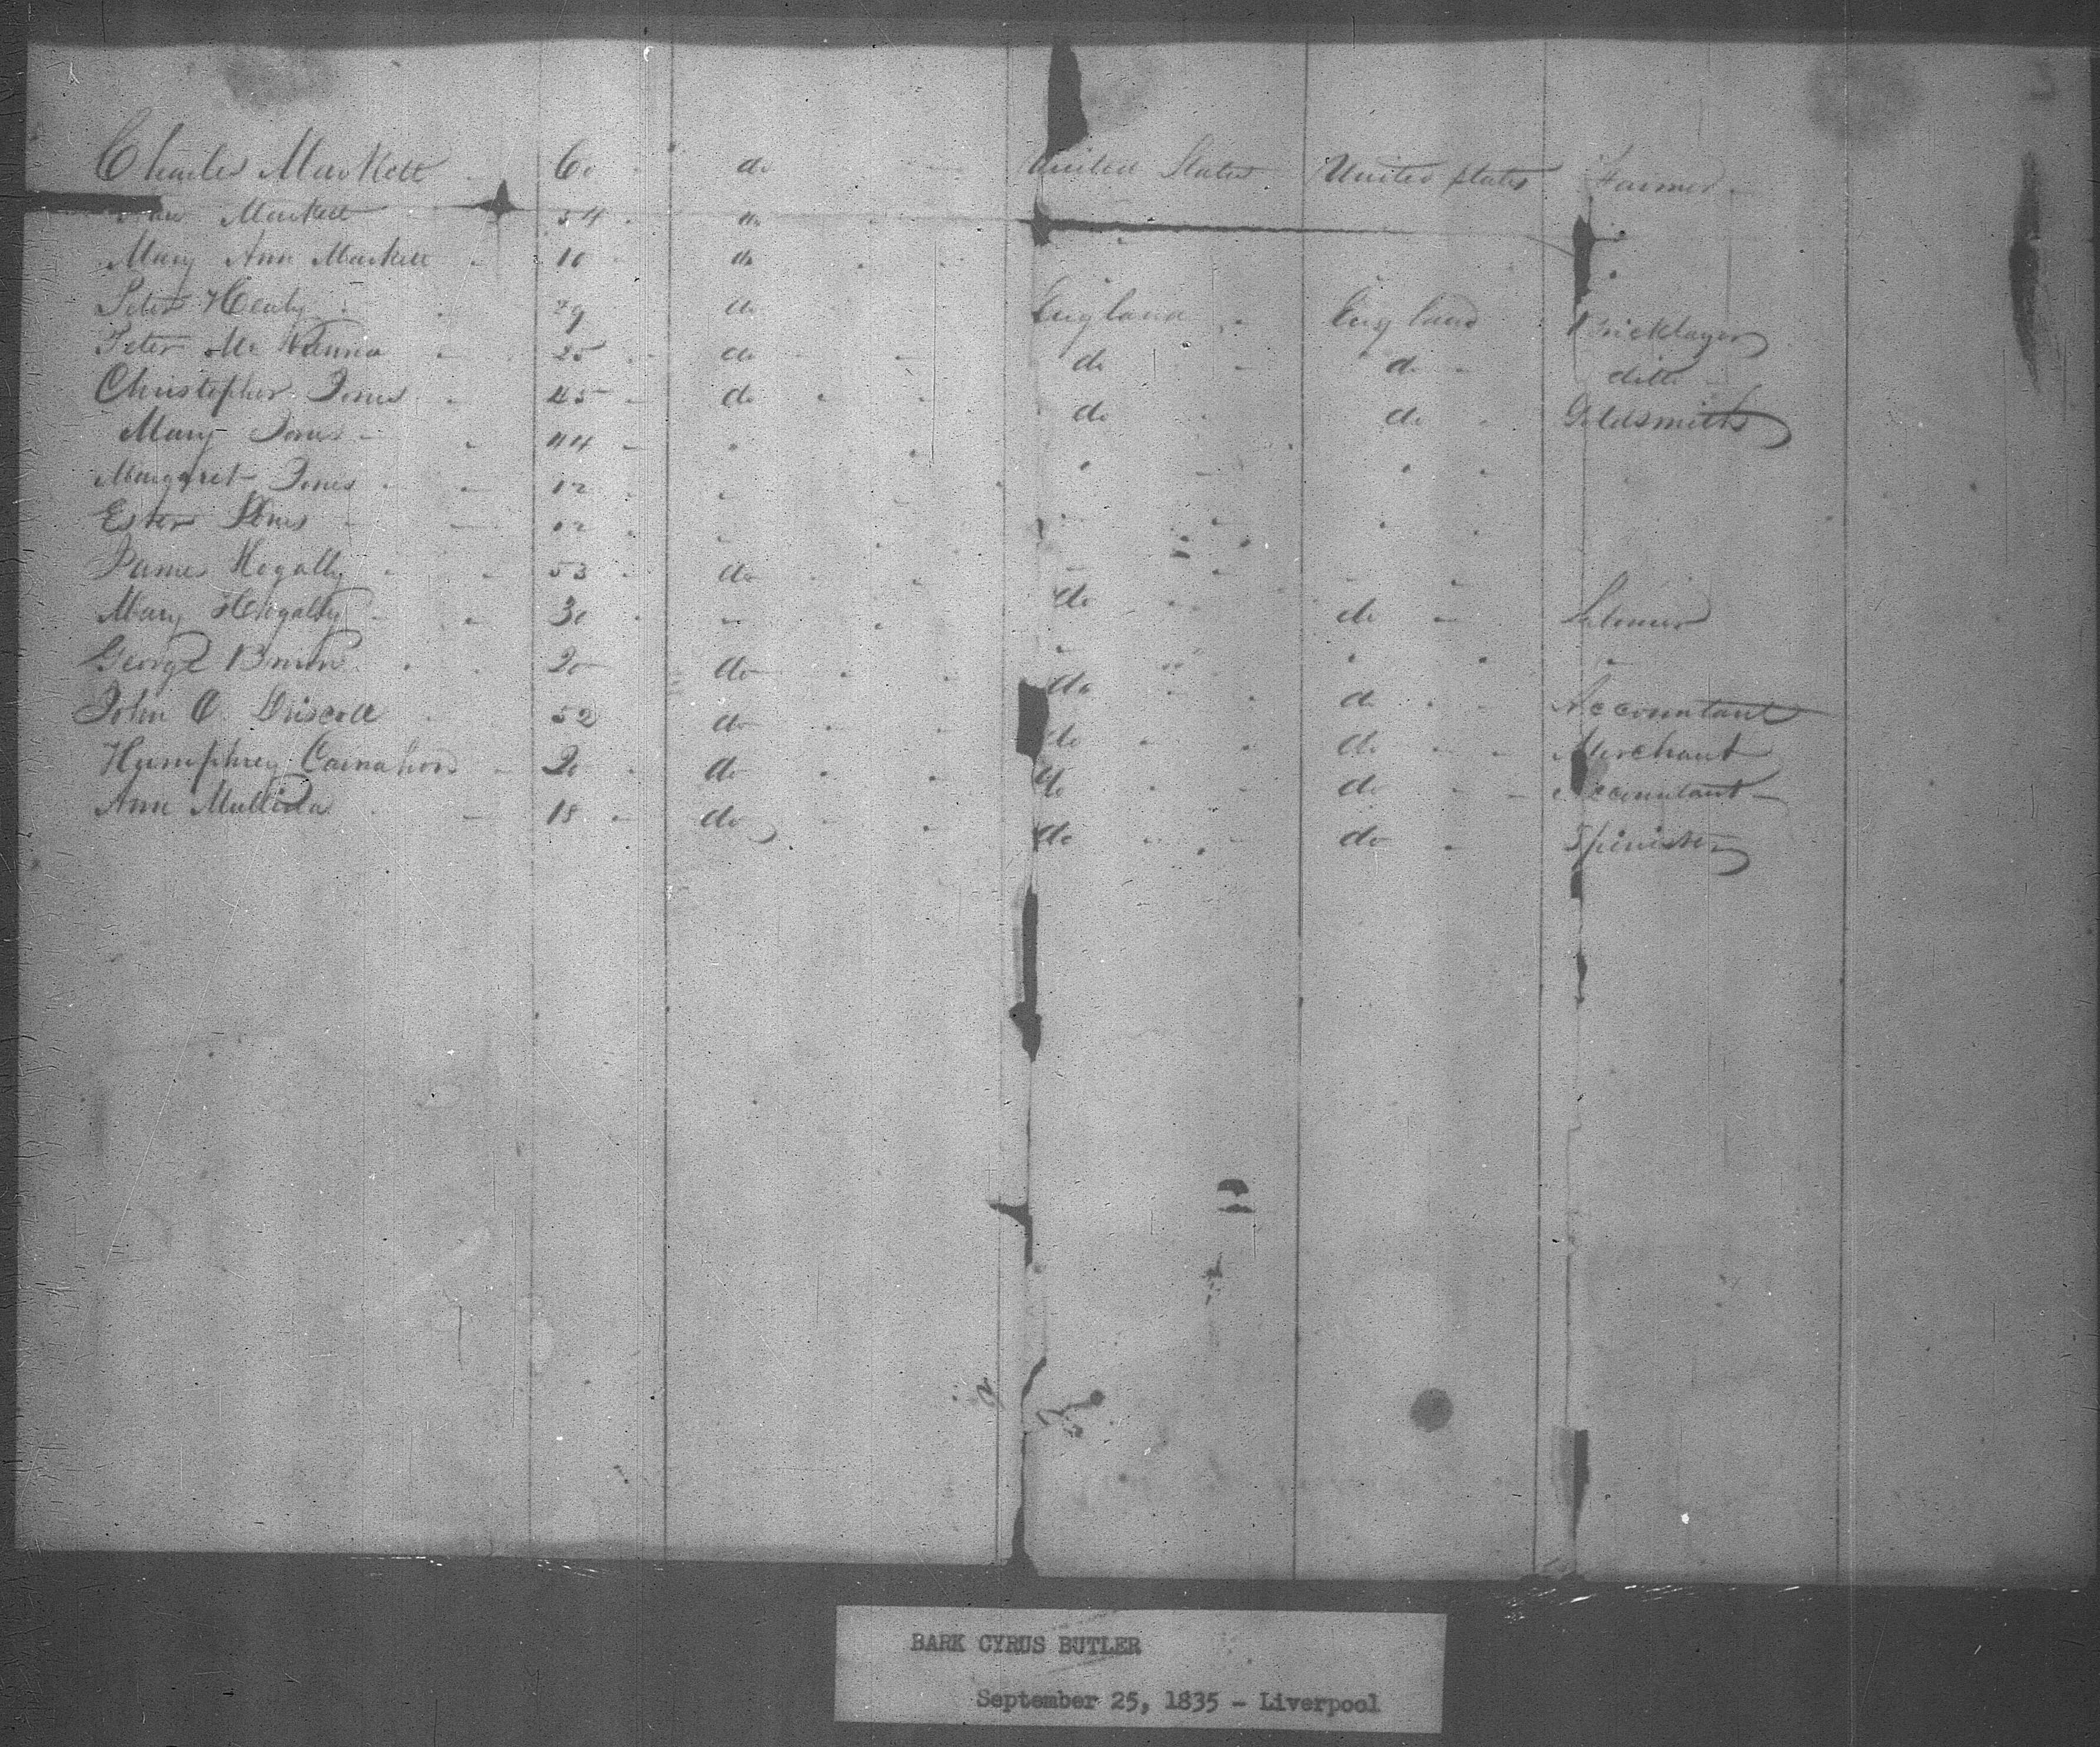 Charles Markett 60 do United States United States Farmer
Markett 54 do
Mary Ann Markett 10 do
Peter Healy 29 do England England Bricklayer
Peter Mc Kenna 25 do do do ditto
Christopher Jones 45 do do do Goldsmith
Mary Jones 44
Margaret Jones 12
Ester Jones 02
James Hegally 53 do do do
Mary Hegally 30
George Brown 20 do do do Accountant
John O. Driscoll 52 do do do Merchant
Humphrey 20 do do do Accountant
Ann 18 do do do Spinister
BARK CYRUS BUTLER
September 25, 1835 - Liverpool